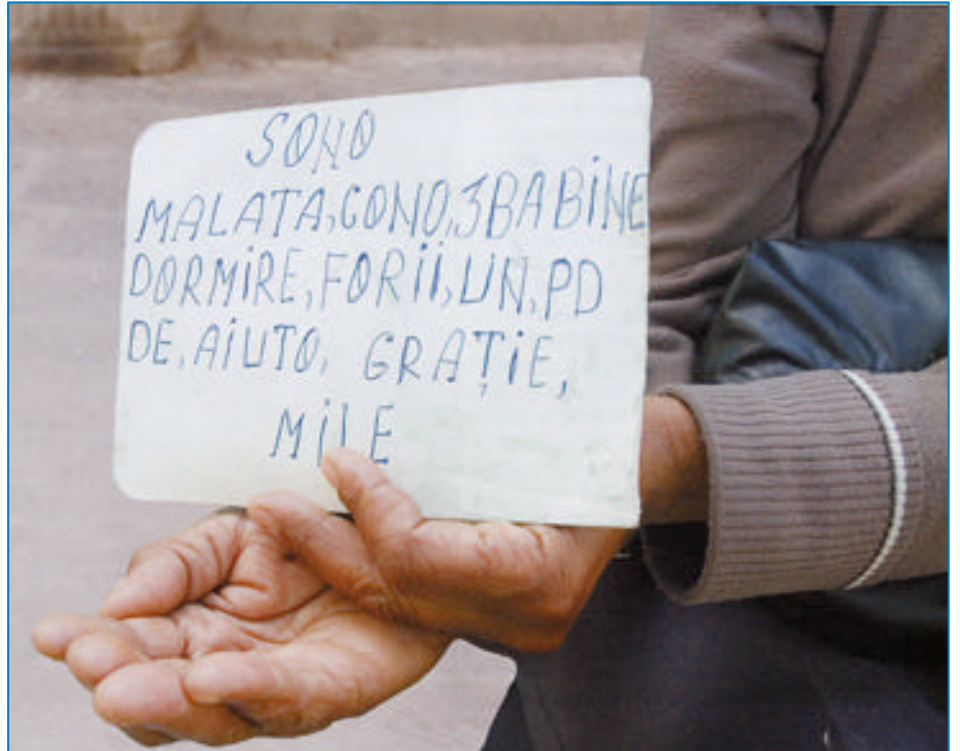 SONO
MALATA,CONO,3BABiNE
DORMiRE,FORii,UN,PD
DE,AiUTO, GRAȚiE,
MiLE